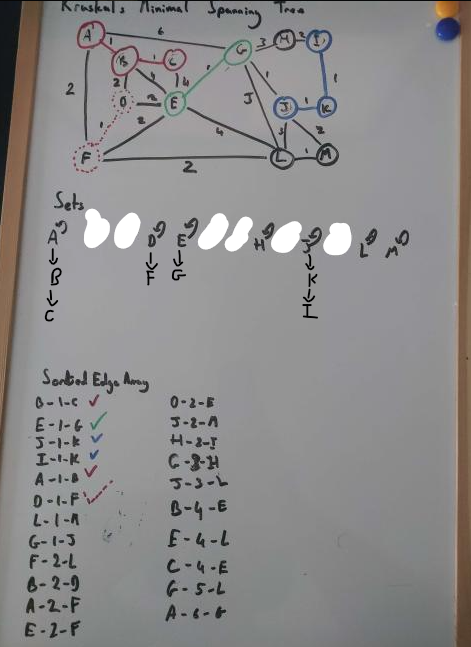 Kruskals Minimal Spanning Tree
A 6 G 3 H 2 I
1 B 1 C 1
2 2 4 4 1 1
D 2 E J 1 K
1 2 4 5 3 2
F 2 L 1 M
Sets
A D E H J L M
B F G K
C I
Sorted Edge Array
B-1-C
E-1-G
J-1-K
I-1-K
A-1-B
D-1-F
L-1-M
G-1-J
F-2-L
B-2-D
A-2-F
E-2-F
D-2-E
J-2-M
H-2-I
G-3-H
J-3-L
B-4-E
E-4-L
C-4-E
G-5-L
A-6-G